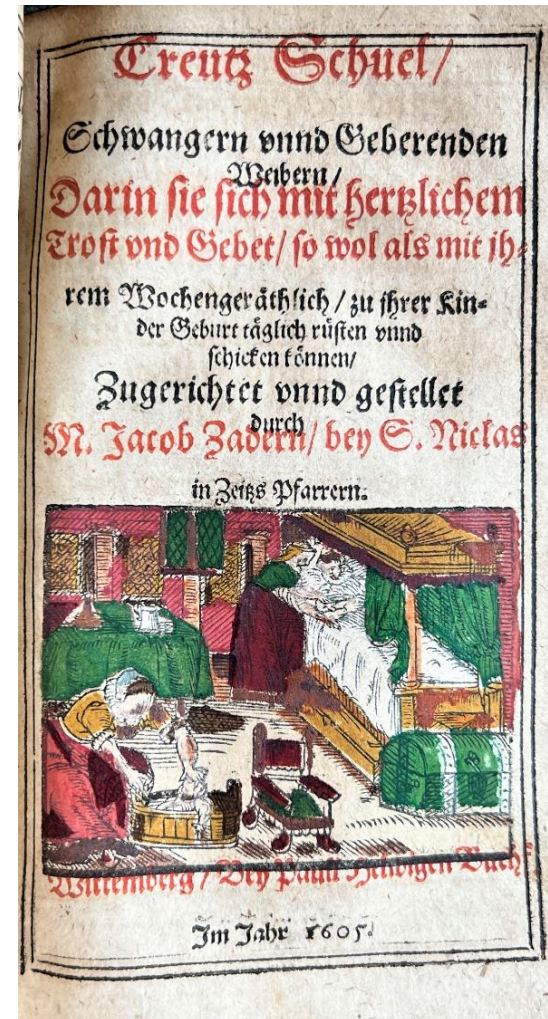 Creutz Schuel/
Schwangern vnnd Geberenden
Weibern/
Darin sie sich mit hertzlichem
Trost vnd Gebet/ so wol als mit jh-
rem Wochengeräthlich/ zu jhrer Kin-
der Geburt täglich rüsten vnnd
schicken können/
Zugerichtet vnnd gestellet
durch
M. Jacob Zadern/ bey S. Niclas
in Zeitzs Pfarrern.
Wittemberg/ Bey Pauli Helwigen Buchf.
Im Jahr 1605.